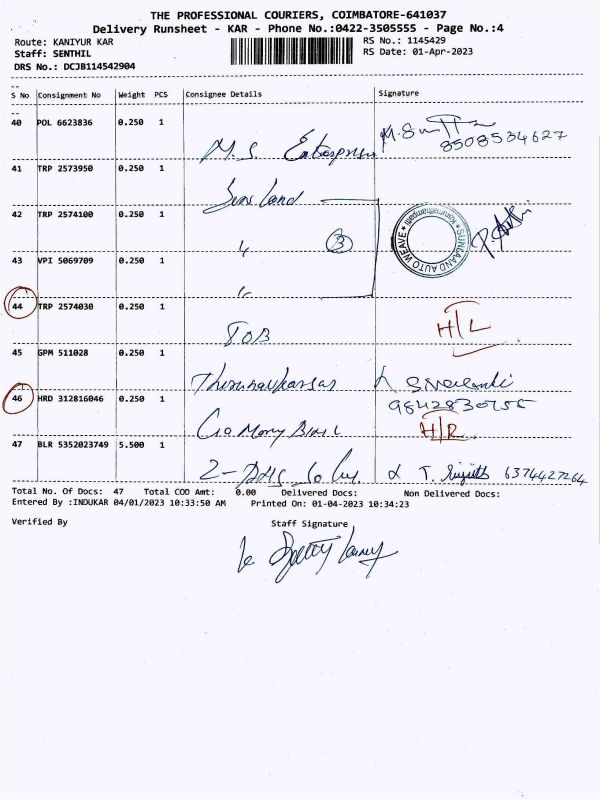 THE PROFESSIONAL COURIERS, COIMBATORE-641037
Delivery Runsheet - KAR - Phone No.:0422-3505555 - Page No.:4
Route: KANIYUR KAR
RS No.: 1145429
Staff: SENTHIL
RS Date: 01-Apr-2023
DRS No.: DCJB114542904
S No Consignment No Weight PCS Consignee Details Signature
40 POL 6623836 0.250 1
M.S. Enterprises 8508534627
41 TRP 2573950 0.250 1
Land
42 TRP 2574100 0.250 1
3
SUNLAND AUTO WEAVE
43 VPI 5069709 0.250 1
44 TRP 2574030 0.250 1
H/L
45 GPM 511028 0.250 1
46 HRD 312816046 0.250 1
H/R
47 BLR 5352023749 5.500 1
6374427264
Total No. Of Docs: 47 Total COD Amt: 0.00 Delivered Docs: Non Delivered Docs:
Entered By :INDUKAR 04/01/2023 10:33:50 AM Printed On: 01-04-2023 10:34:23
Verified By Staff Signature